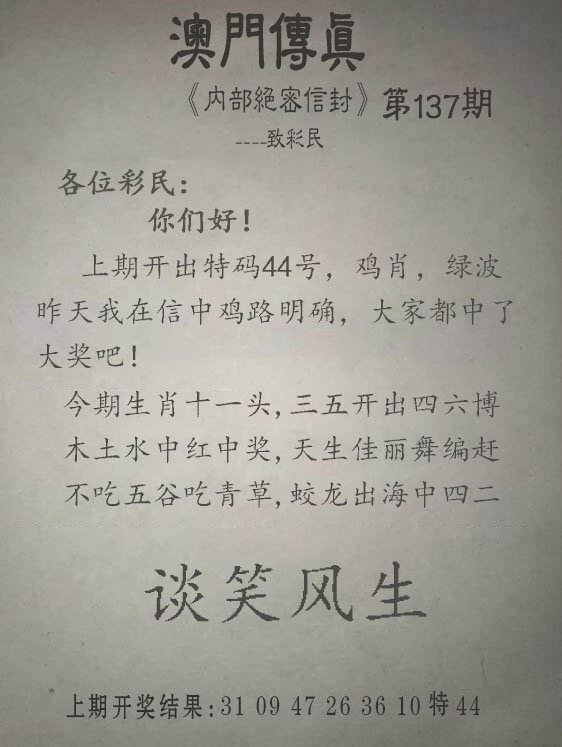 澳門傳真
《内部絕密信封》第137期
----致彩民
各位彩民：
你们好！
上期开出特码44号，鸡肖，绿波
昨天我在信中鸡路明确，大家都中了
大奖吧！
今期生肖十一头,三五开出四六博
木土水中红中奖,天生佳丽舞编赶
不吃五谷吃青草,蛟龙出海中四二
谈笑风生
上期开奖结果:31 09 47 26 36 10特44